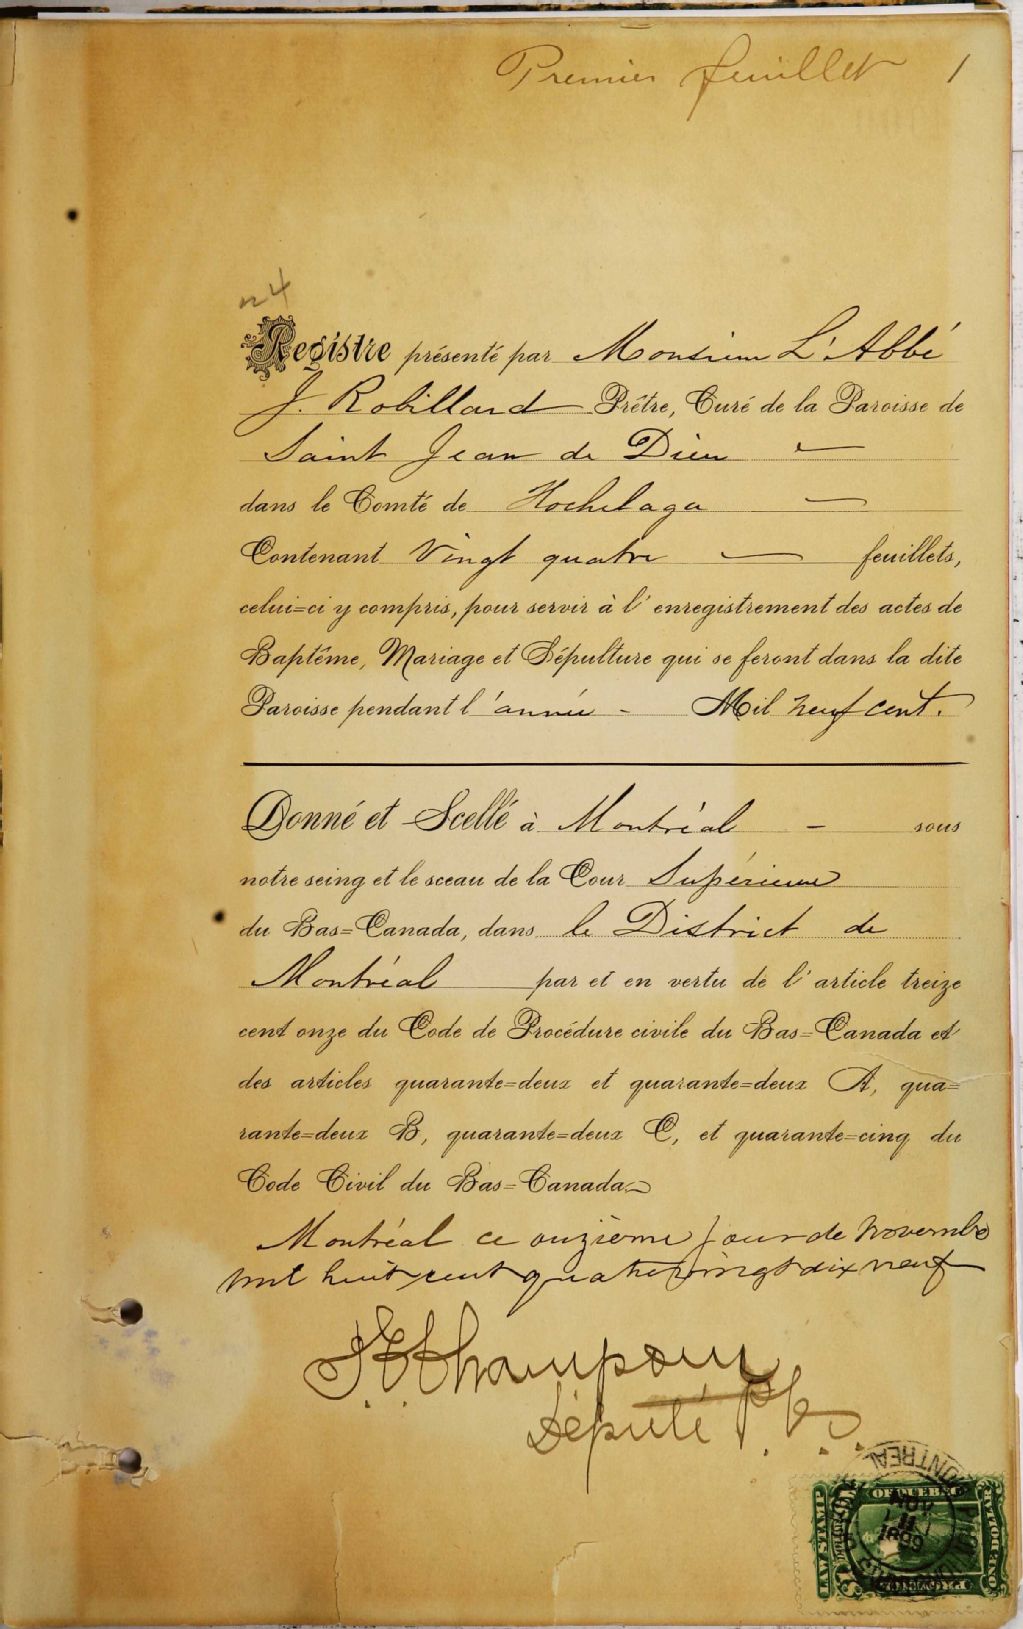 Premier feuillet 1
n 4
Registre présenté par Monsieur L'Abbé
J. Robillard Prêtre, Curé de la Paroisse de
Saint Jean de Dieu
dans le Comté de Hochelaga
Contenant Vingt quatre feuillets,
celui=ci y compris, pour servir à l'enregistrement des actes de
Baptême, Mariage et Sépulture qui se feront dans la dite
Paroisse pendant l'année - Mil neuf cent.
Donné et Scellé à Montréal - sous
notre seing et le sceau de la Cour Supérieure
du Bas=Canada, dans le District de
Montréal par et en vertu de l'article treize
cent onze du Code de Procédure civile du Bas=Canada et
des articles quarante=deux et quarante=deux A, qua=
rante=deux B, quarante=deux C, et quarante=cinq du
Code Civil du Bas=Canada
Montréal ce onzième jour de novembre
mil huit cent quatre vingt dix neuf
Député P.
MONTREAL
NOV
11
1899
LAW STAMP
OF QUEBEC
ONE DOLLAR